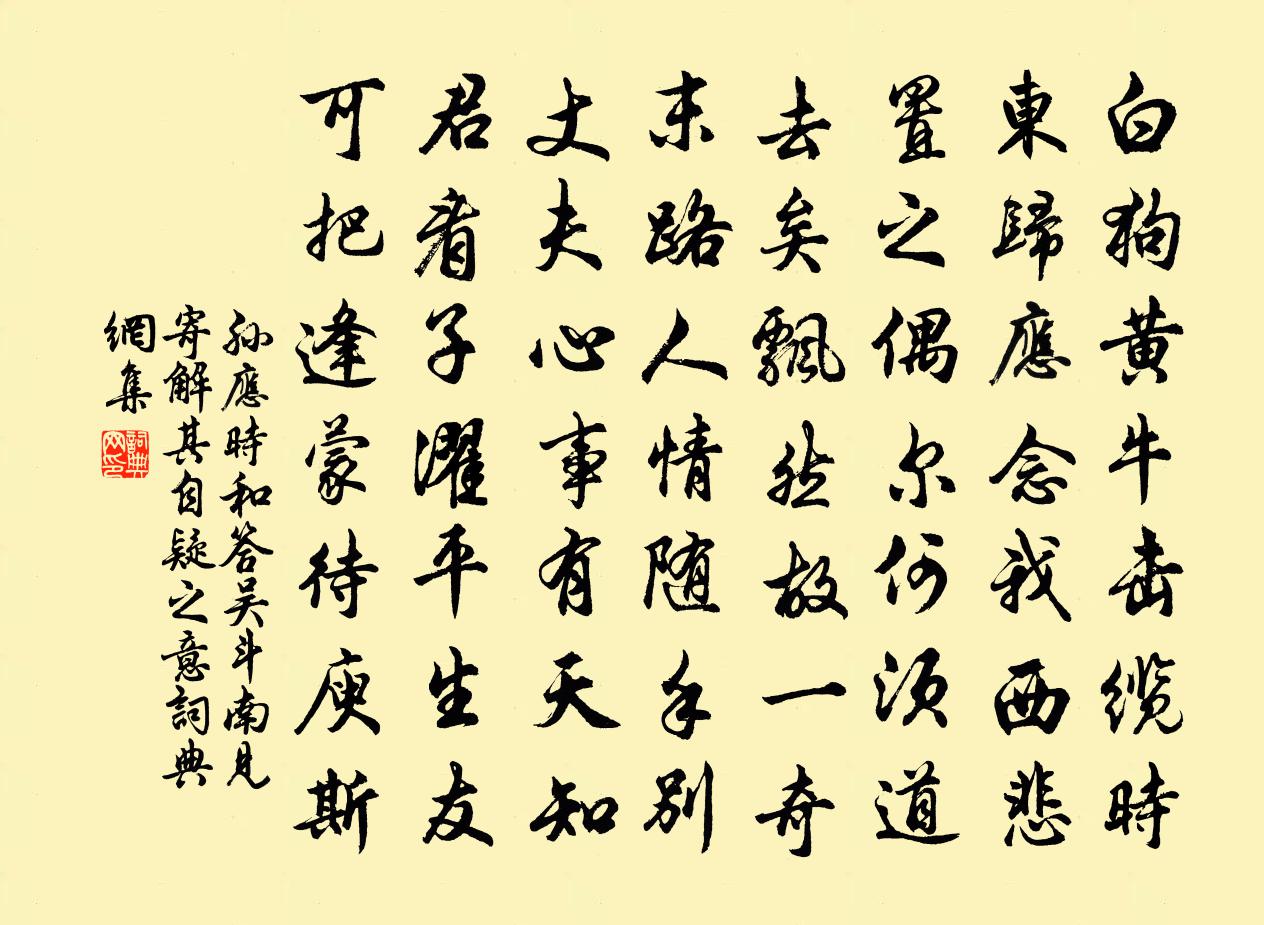 白狗黄牛击缆時
東歸應念我西悲
置之偶尔何須道
去矣飄然故一奇
末路人情随手别
丈夫心事有天知
君看子濯平生友
可把逢蒙待庾斯
孙應時和答吴斗南見
寄解其自疑之意詞典
網集
詞典網印